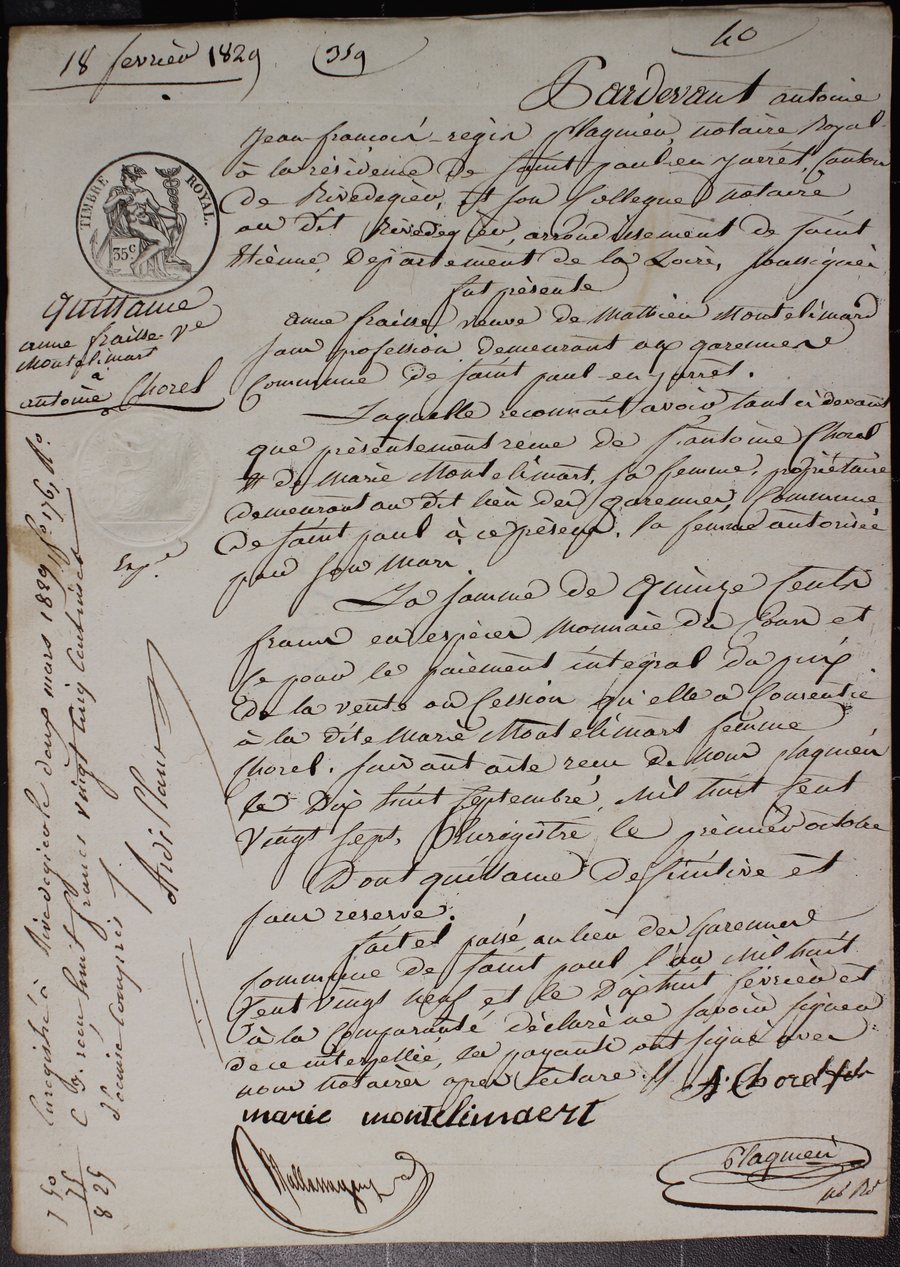 18 fevrier 1829
359
40
Pardevant antoine
Jean françois regis Plagnieu, notaire Royal
à la résidence de Saint paul en jarrêt, Canton
De Rivedegier, et son Collegue notaire
au dit Rivedegier, arrondissement de Saint
Etienne, Departement de la Loire, soussignés,
fut présente
anne fraisse veuve de Mathieu Montelimard
sans profession demeurant aux garennes
Commune de Saint paul-en-jarrêt.
Laquelle reconnait avoir tant ci devant
que présentement reçue de S. antoine Chorel
et de Marie Montelimart, sa femme, propriétaire
demeurant au Dit lieu des garennes, Commune
De Saint paul à ce présens, la femme autorisée
par son Mari.
La somme de quinze Cents
francs en espèces Monnaie du Cours et
ce pour le paiement intégral du prix
De la vente ou Cession qu'elle a Consentie
à la Dite Marie Montelimart femme
Chorel, suivant acte reçu de Nous Plagnieu
le Dix huit Septembre, Mil huit Cent
Vingt Sept, Enregistré le premier octobre
Dont quittance Definitive et
sans réserve.
fait et passé au lieu des Garennes
Commune de Saint paul l'an Mil huit
Cent Vingt neuf et le Dix huit fevrier et
à la Comparante déclaré ne savoir signer
de ce interpellée, les payants ont signé avec
nous notaires apres lecture.
A. Chorel
marie montelimaert
Plagnieu
TIMBRE ROYAL.
35 c
quittance
anne fraisse Ve
Montelimart
à
antoine Chorel
Exp.
Enregistré à Rivedegier le deux mars 1829 fo 176, Ro
reçu huit francs vingt cinq centimes
décime compris
7 50
75
8 25